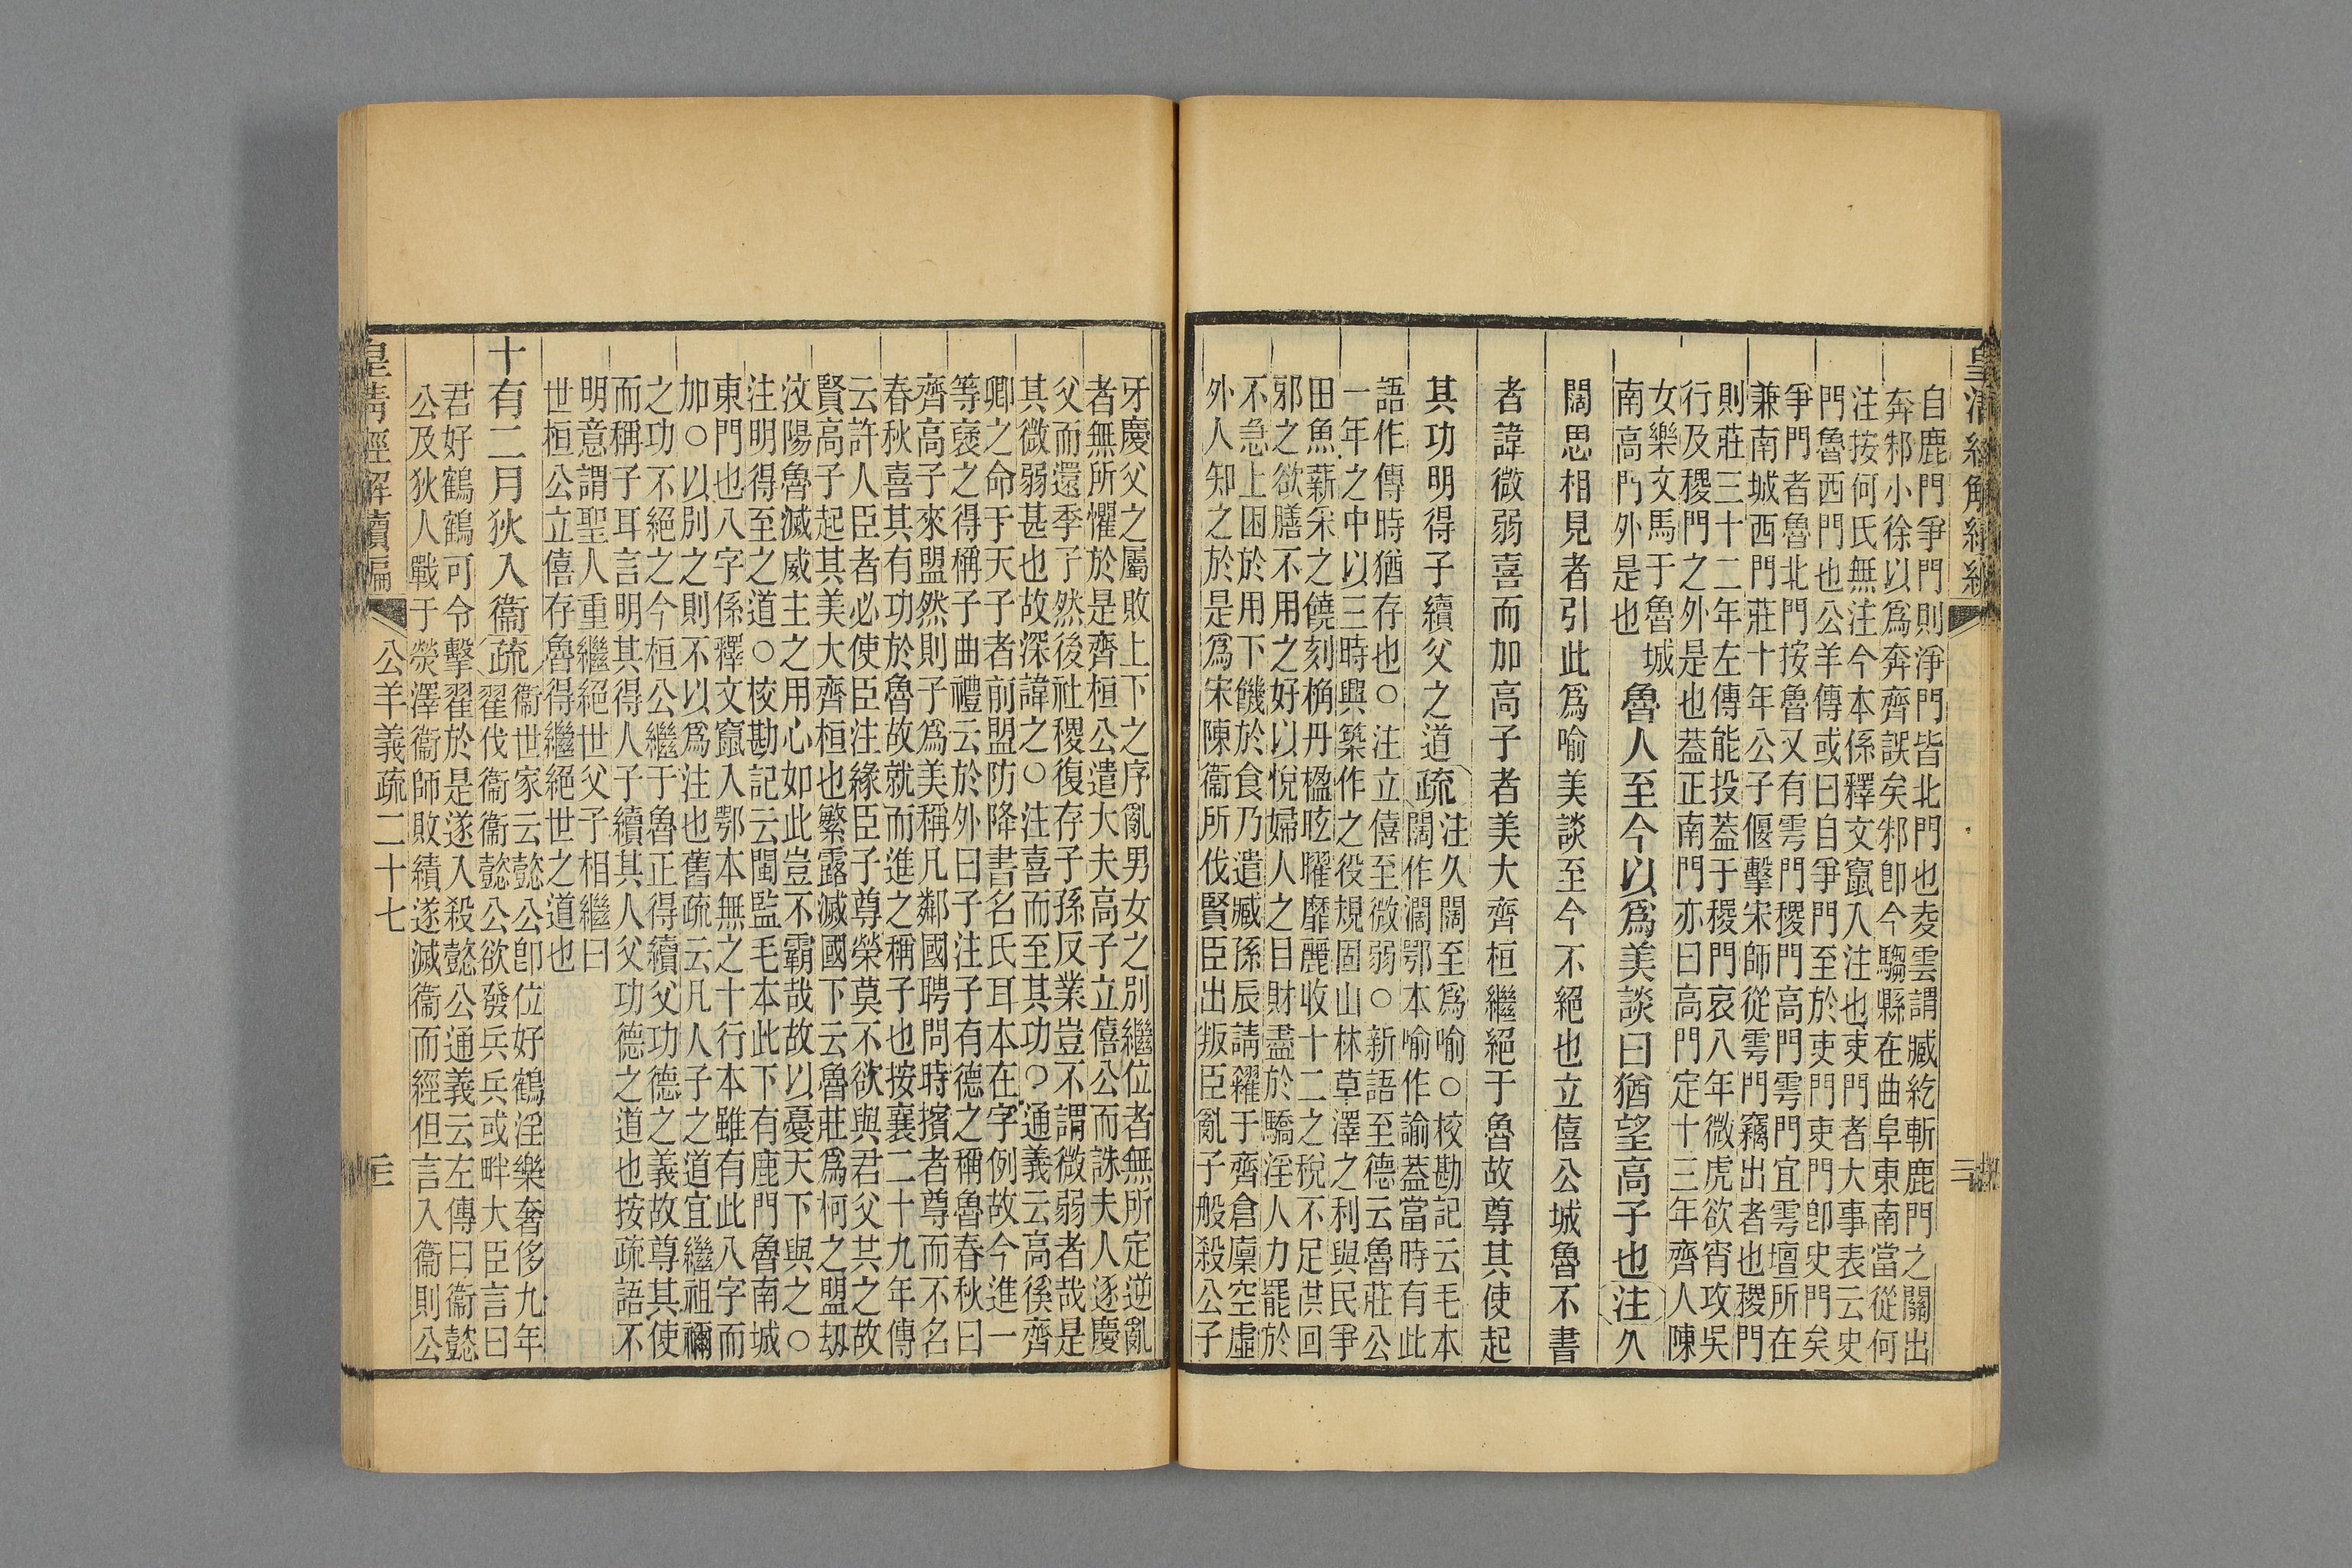 自鹿門爭門則淨門皆北門也夌雲謂臧紇斬鹿門之關出
奔邾小徐以爲奔齊誤矣邾卽今騶縣在曲阜東南當從何
注按何氏無注今本係釋文竄入注也吏門者大事表云史
門魯西門也公羊傳或曰自爭門至於吏門吏門卽史門矣
爭門者魯北門按魯又有雩門稷門高門雩門宜雩壇所在
兼南城西門莊十年公子偃擊宋師從雩門竊出者也稷門
則莊三十二年左傳能投蓋于稷門哀八年微虎欲宵攻吳
行及稷門之外是也蓋正南門亦曰高門定十三年齊人陳
女樂文馬于魯城
南高門外是也
魯人至今以爲美談曰猶望高子也注久
闊思相見者引此爲喻美談至今不絕也立僖公城魯不書
者諱微弱喜而加高子者美大齊桓繼絕于魯故尊其使起
其功明得子續父之道疏
注久闊至爲喻○校勘記云毛本
闊作濶鄂本喻作諭蓋當時有此
語作傳時猶存也○注立僖至微弱○新語至德云魯莊公
一年之中以三時興築作之役規固山林草澤之利與民爭
田魚薪采之饒刻桷丹楹眩曜靡麗收十二之稅不足供回
邪之欲膳不用之好以悅婦人之目財盡於驕淫人力罷於
不急上困於用下饑於食乃遣臧孫辰請糴于齊倉廩空虛
外人知之於是爲宋陳衞所伐賢臣出叛臣亂子般殺公子
牙慶父之屬敗上下之序亂男女之別繼位者無所定逆亂
者無所懼於是齊桓公遣大夫高子立僖公而誅夫人逐慶
父而還季子然後社稷復存子孫反業豈不謂微弱者哉是
其微弱甚也故深諱之○注喜而至其功○通義云高傒齊
卿之命于天子者前盟防降書名氏耳本在字例故今進一
等襃之得稱子曲禮云於外曰子注子有德之稱魯春秋曰
齊高子來盟然則子爲美稱凡鄰國聘問時擯者尊而不名
春秋喜其有功於魯故就而進之稱子也按襄二十九年傳
云許人臣者必使臣注緣臣子尊榮莫不欲與君父共之故
賢高子起其美大齊桓也繁露滅國下云魯莊爲柯之盟刧
汶陽魯滅威主之用心如此豈不霸哉故以憂天下與之○
注明得至之道○校勘記云閩監毛本此下有鹿門魯南城
東門也八字係釋文竄入鄂本無之十行本雖有此八字而
加○以別之則不以爲注也舊疏云凡人子之道宜繼祖禰
之功不絕之今桓公繼于魯正得續父功德之義故尊其使
而稱子耳言明其得人子續其人父功德之道也按疏語不
明意謂聖人重繼絕世父子相繼曰
世桓公立僖存魯得繼絕世之道也
十有二月狄入衞疏
衞世家云懿公卽位好鶴淫樂奢侈九年
翟伐衞衞懿公欲發兵兵或畔大臣言曰
君好鶴鶴可令擊翟於是遂入殺懿公通義云左傳曰衞懿
公及狄人戰于熒澤衞師敗績遂滅衞而經但言入衞則公
皇清經解續編
公羊義疏二十七